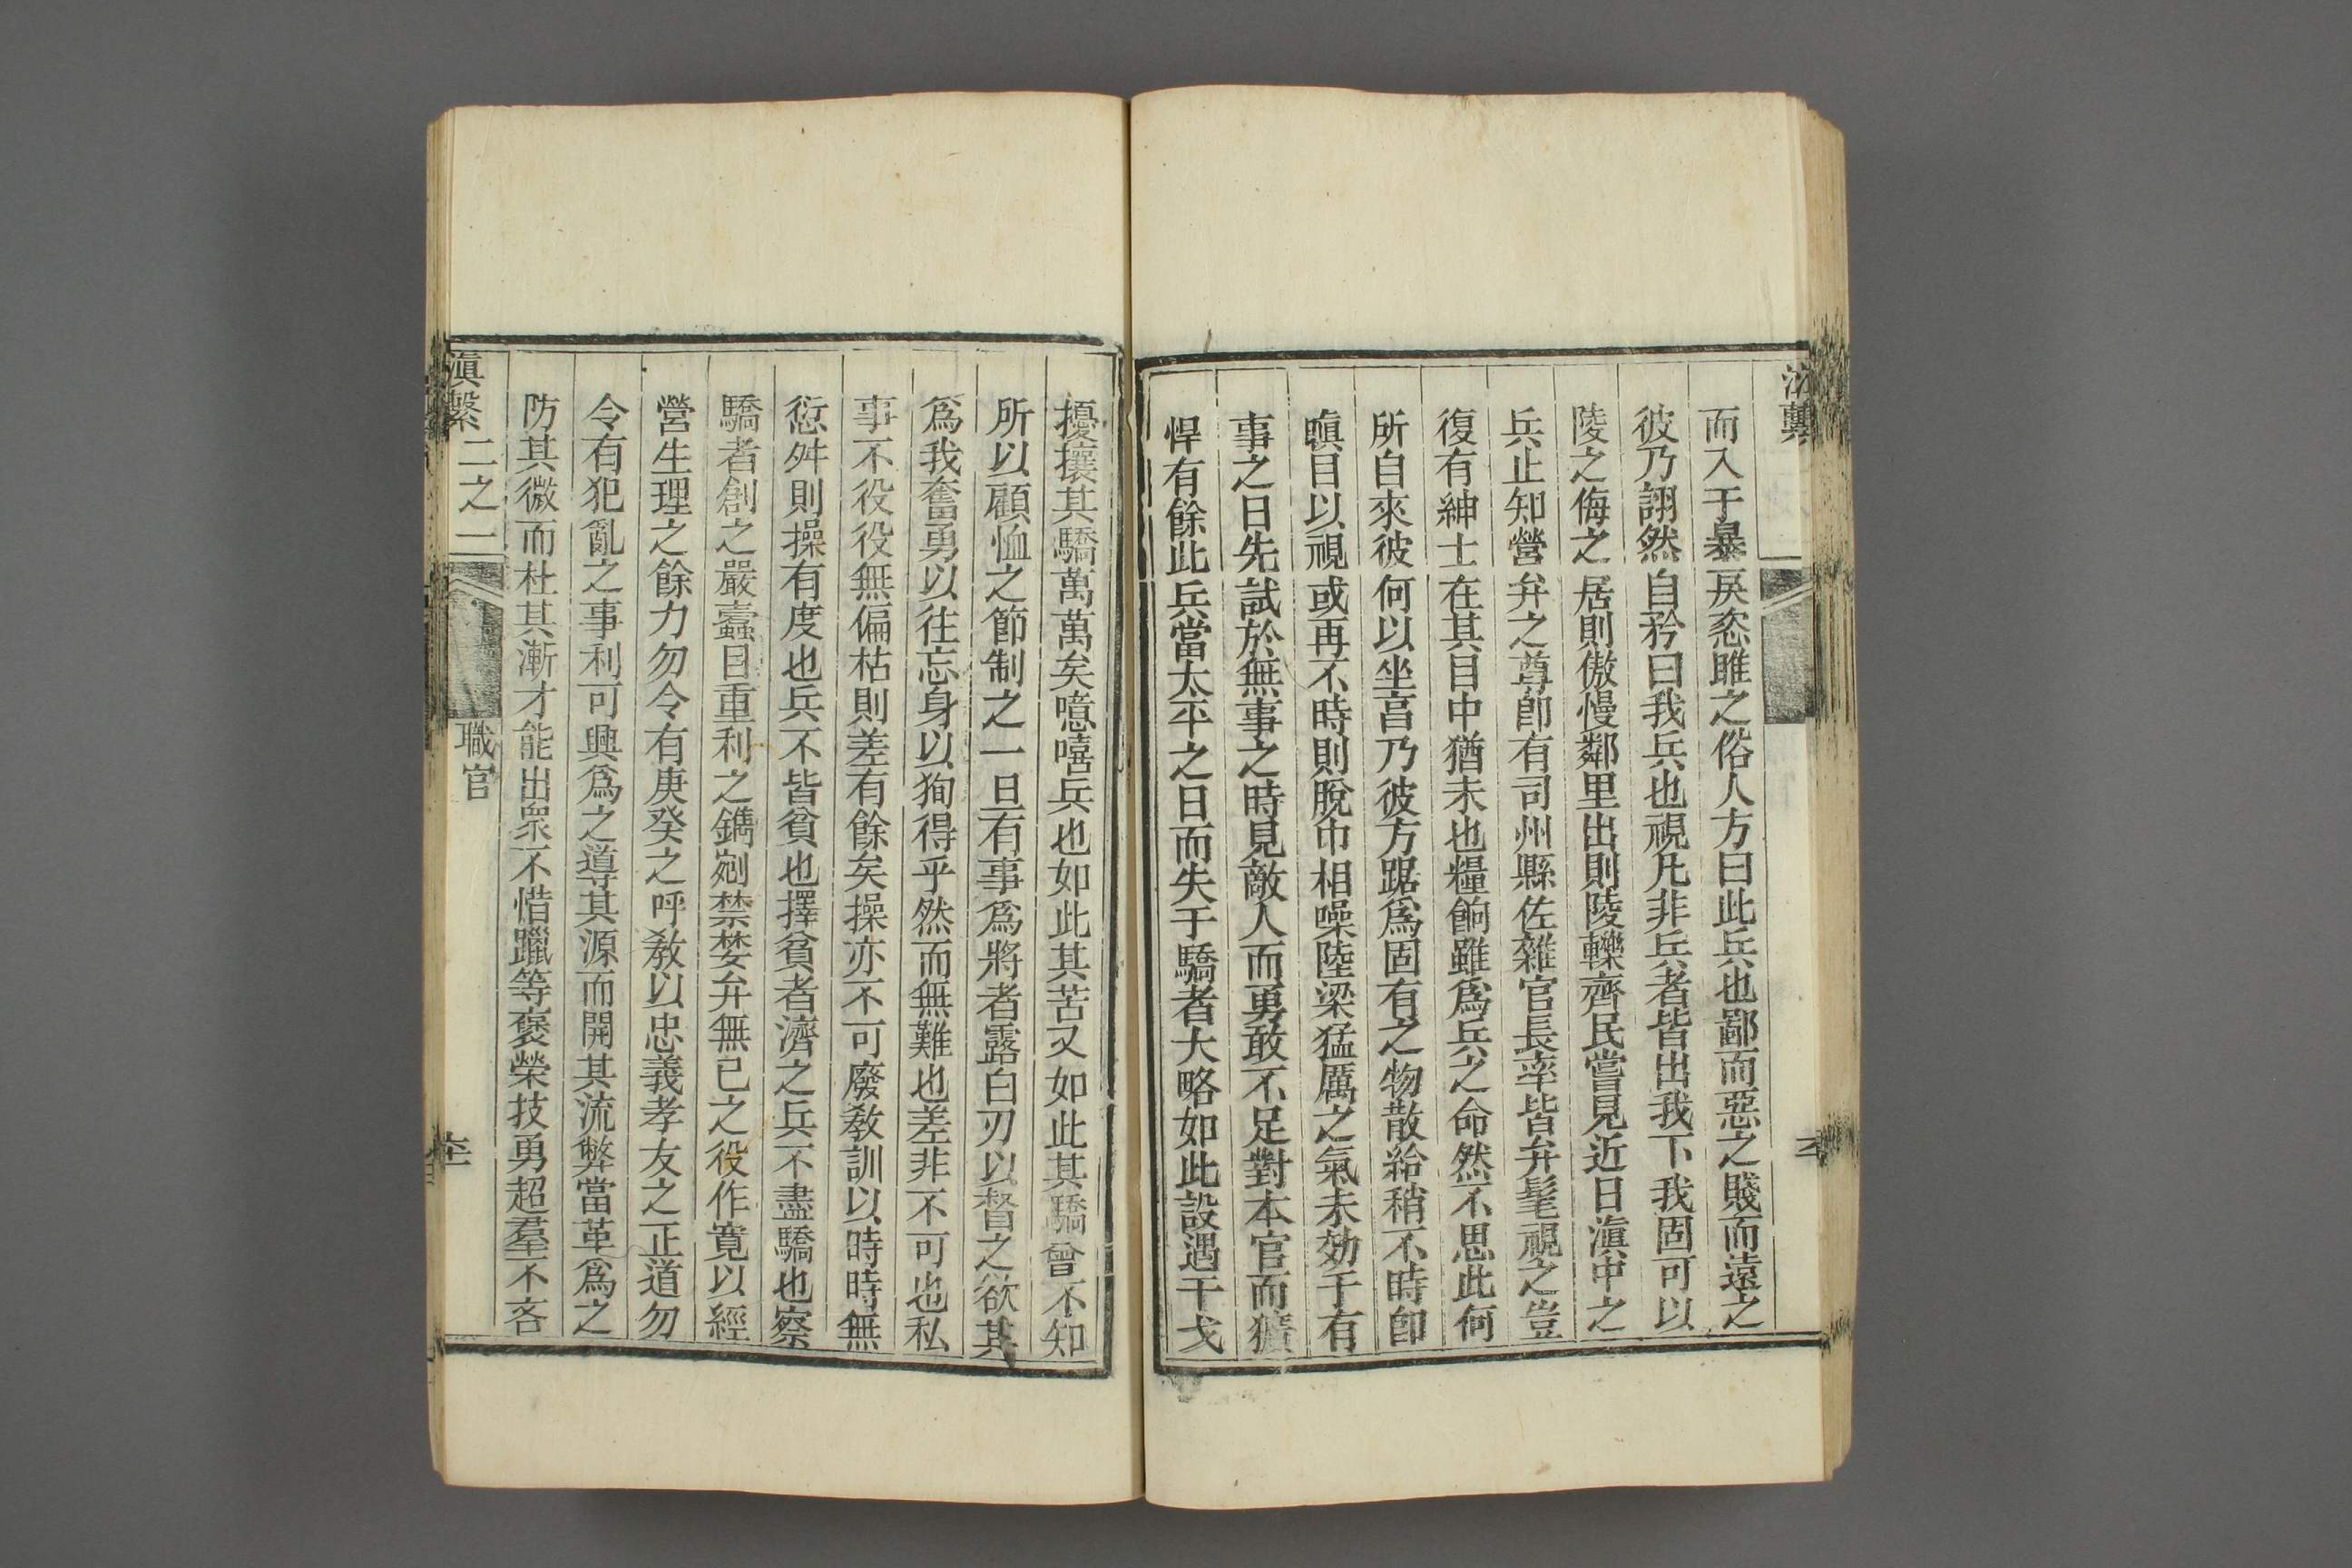 而入于暴戾恣雎之俗人方曰此兵也鄙而惡之賤而遠之
彼乃詡然自矜曰我兵也視凡非兵者皆出我下我固可以
陵之侮之居則傲慢鄰里出則陵轢齊民嘗見近日滇中之
兵止知營弁之尊卽有司州縣佐雜官長率皆弁髦視之豈
復有紳士在其目中猶未也糧餉雖爲兵之命然不思此何
所自來彼何以坐亯乃彼方踞爲固有之物散給稍不時卽
瞋目以視或再不時則脫巾相噪陸梁猛厲之氣未効于有
事之日先試於無事之時見敵人而勇敢不足對本官而獷
悍有餘此兵當太平之日而失于驕者大略如此設遇干戈
擾攘其驕萬萬矣噫嘻兵也如此其苦又如此其驕曾不知
所以顧恤之節制之一旦有事爲將者露白刃以督之欲其
爲我奮勇以往忘身以狥得乎然而無難也差非不可也私
事不役役無偏枯則差有餘矣操亦不可廢敎訓以時時無
愆舛則操有度也兵不皆貧也擇貧者濟之兵不盡驕也察
驕者創之嚴蠹目重利之鐫剜禁婪弁無已之役作寬以經
營生理之餘力勿令有庚癸之呼敎以忠義孝友之正道勿
令有犯亂之事利可興爲之導其源而開其流弊當革爲之
防其微而杜其漸才能出衆不惜躐等褒榮技勇超羣不吝
滇繫 二之二 職官